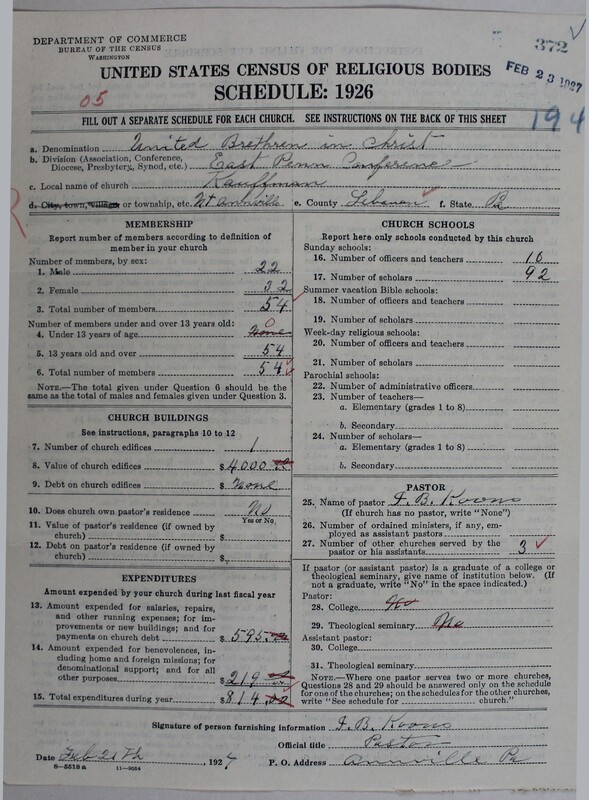 DEPARTMENT OF COMMERCE
BUREAU OF THE CENSUS
WASHINGTON
372
FEB 23 1927
UNITED STATES CENSUS OF RELIGIOUS BODIES
SCHEDULE: 1926
05
194
FILL OUT A SEPARATE SCHEDULE FOR EACH CHURCH. SEE INSTRUCTIONS ON THE BACK OF THIS SHEET
a. Denomination United Brethren in Christ
b. Division (Association, Conference, Diocese, Presbytery, Synod, etc.) East Penn Conference
c. Local name of church Kauffman
d. City, town, village or township, etc. Nt Annville e. County Lebanon f. State Pa
MEMBERSHIP
Report number of members according to definition of
member in your church
Number of members, by sex:
1. Male 22
2. Female 32
3. Total number of members 54
Number of members under and over 13 years old:
4. Under 13 years of age None 0
5. 13 years old and over 54
6. Total number of members 54
NOTE.—The total given under Question 6 should be
same as the total of males and females given under Question 3.
CHURCH BUILDINGS
See instructions, paragraphs 10 to 12
7. Number of church edifices 1
8. Value of church edifices $4000.00
9. Debt on church edifices $ None
10. Does church own pastor's residence No
Yes or No
11. Value of pastor's residence (if owned by
church) $
12. Debt on pastor's residence (if owned by
church) $
EXPENDITURES
Amount expended by your church during last fiscal year
13. Amount expended for salaries, repairs,
and other running expenses; for im-
provements or new buildings; and for
payments on church debt $595
14. Amount expended for benevolences, in-
cluding home and foreign missions; for
denominational support; and for all
other purposes $219
15. Total expenditures during year $814
CHURCH SCHOOLS
Report here only schools conducted by this church
Sunday schools:
16. Number of officers and teachers 16
17. Number of scholars 92
Summer vacation Bible schools:
18. Number of officers and teachers
19. Number of scholars
Week-day religious schools:
20. Number of officers and teachers
21. Number of scholars
Parochial schools:
22. Number of administrative officers
23. Number of teachers—
a. Elementary (grades 1 to 8)
b. Secondary
24. Number of scholars—
a. Elementary (grades 1 to 8)
b. Secondary
PASTOR
25. Name of pastor I. B. Koons
(If church has no pastor, write "None")
26. Number of ordained ministers, if any, em-
ployed as assistant pastors
27. Number of other churches served by the
pastor or his assistants 3
If pastor (or assistant pastor) is a graduate of a college or
theological seminary, give name of institution below. (If
not a graduate, write "No" in the space indicated.)
Pastor:
28. College No
29. Theological seminary No
Assistant pastor:
30. College
31. Theological seminary
NOTE.—Where one pastor serves two or more churches,
Questions 28 and 29 should be answered only on the schedule
for one of the churches; on the schedules for the other churches,
write "See schedule for church."
Signature of person furnishing information I. B. Koons
Official title Pastor
Date Feb 21th, 1927 P. O. Address Annville Pa
8-5518a 11-9054